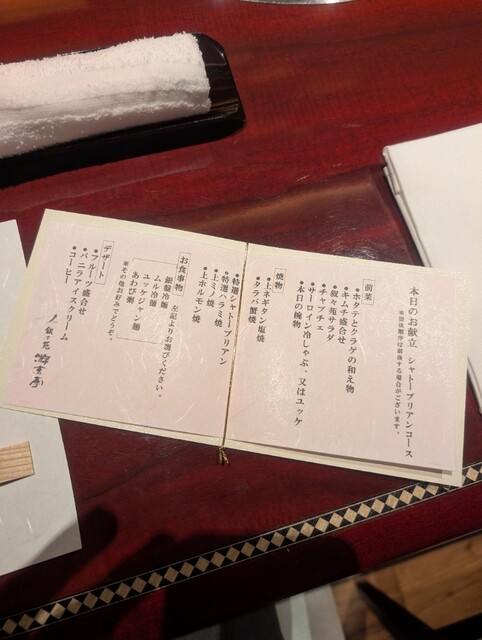 本日のお献立 シャトーブリアンコース
※提供順序は前後する場合がございます。
前菜
●ホタテとクラゲの和え物
●キムチ盛合せ
●叙々苑サラダ
●チャプチェ
●サーロイン冷しゃぶ、又はユッケ
●本日の椀物
焼物
●上ネギタン塩焼
●タラバ蟹焼
●特選シャトーブリアン
●特選ハラミ焼
●上ミノ焼
●上ホルモン焼
お食事物 左記よりお選びください。
銀盤冷麺
ムル冷麺
ユッケジャン麺
あわび粥
※その他お好みでどうぞ。
デザート
●フルーツ盛合せ
●バニラアイスクリーム
●コーヒー
叙々苑 游玄亭